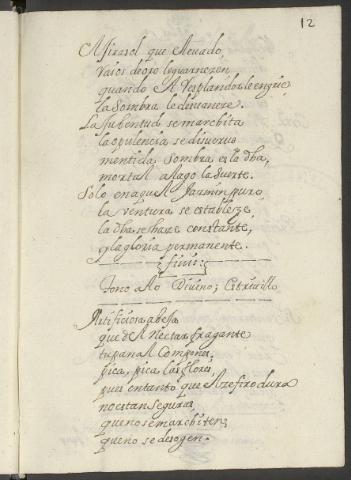 12
Al jirasol que Neuado,
Raios de oro le guarnezen
quando Al Resplandor le engrie,
la Sombra le disuaneze.
La Jubentud se marchita
la opulencia se disuerue
mentida, Sombra es la dha,
mortal Alago la Suerte.
Solo en aquel Jazmin puro,
la ventura se establesze,
la dha se haze constante,
y la gloria permanente.
finis
Tono a lo Diuino; Citriuillo
Artificiosa abeja
que del Nectar fragante
tu panal Compones,
pica, pica las flores,
pues en tanto que Al zefiro dura
no estan Seguras,
que no se marchiten,
que no se desogen.